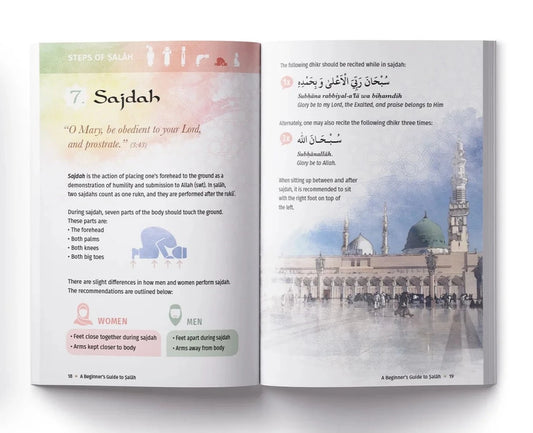 STEPS OF ṢALĀH
7. Sajdah
“O Mary, be obedient to your Lord,
and prostrate.” (3:43)
Sajdah is the action of placing one's forehead to the ground as a
demonstration of humility and submission to Allah (swt). In ṣalāh,
two sajdahs count as one rukn, and they are performed after the rukūʿ.
During sajdah, seven parts of the body should touch the ground.
These parts are:
• The forehead
• Both palms
• Both knees
• Both big toes
There are slight differences in how men and women perform sajdah.
The recommendations are outlined below:
WOMEN
• Feet close together during sajdah
• Arms kept closer to body
MEN
• Feet apart during sajdah
• Arms away from body
18 • A Beginner's Guide to Ṣalāh
The following dhikr should be recited while in sajdah:
1x
سُبْحَانَ رَبِّيَ الْأَعْلىٰ وَ بِحَمْدِهِ
Subḥāna rabbiyal-aʿlā wa biḥamdih
Glory be to my Lord, the Exalted, and praise belongs to Him
Alternately, one may also recite the following dhikr three times:
سُبْحَانَ الله
Subḥānallāh.
Glory be to Allah.
When sitting up between and after
sajdah, it is recommended to sit
with the right foot on top of
the left.
A Beginner's Guide to Ṣalāh • 19